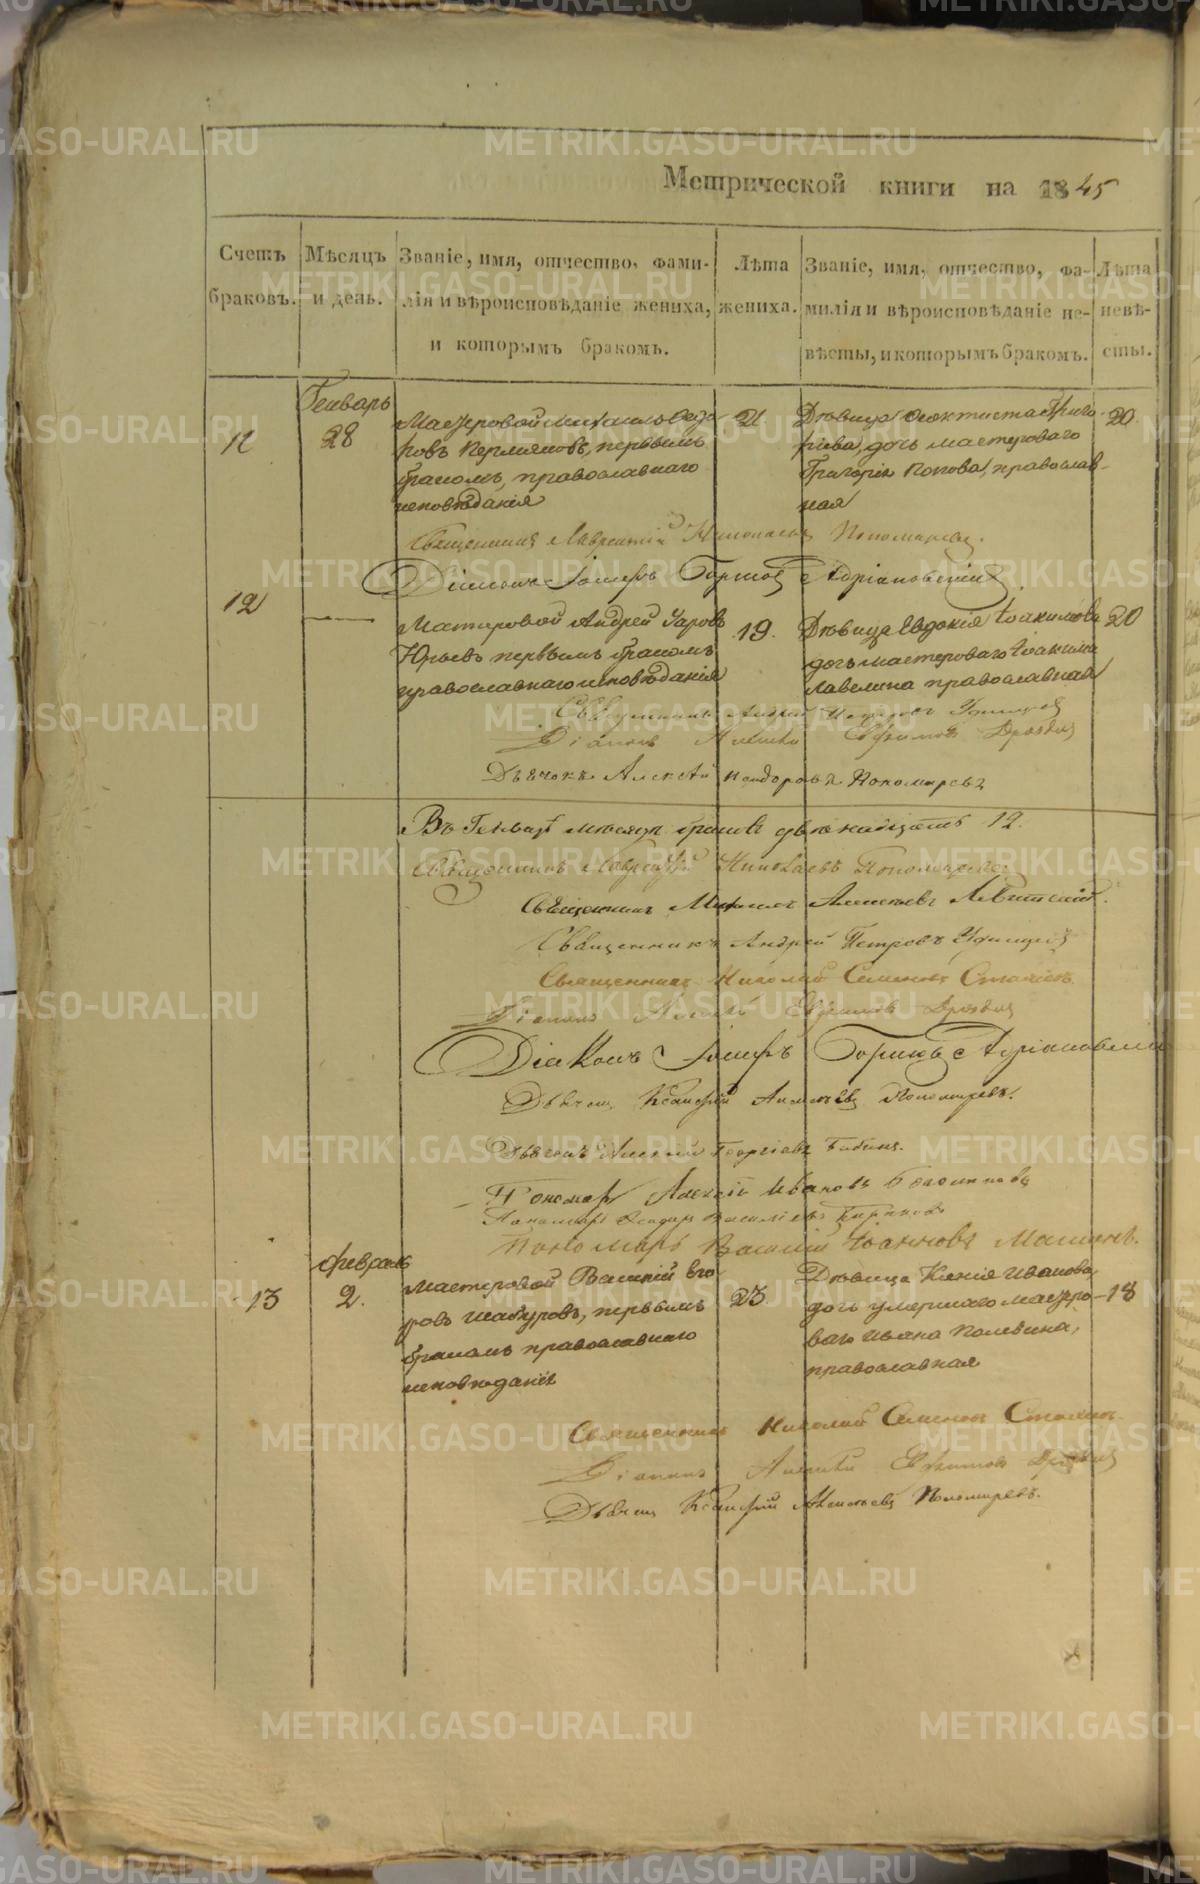 Метрической книги на 1845
Счетъ браковъ.
Мѣсяцъ и день.
Званіе, имя, отчество, фами-
лія и вѣроисповѣданіе жениха,
и которымъ бракомъ.
Лѣта жениха.
Званіе, имя, отчество, фа-
милія и вѣроисповѣданіе не-
вѣсты, и которымъ бракомъ.
Лѣта невѣ-
сты.
Генварь
11
28
Мастеровой Михаилъ Ѳедо
ровъ Пермяковъ, первымъ
бракомъ, православнаго
исповѣданія
21.
Дѣвица Ѳеоктиста Григо-
рьева, дочь мастероваго
Григорія Попова, православ-
ная
20.
Священникъ Лаврентій Николаевъ Пономаревъ.
Діаконъ Іосифъ Адріановскій
12
Мастеровой Андрей Уаровъ
Юрьевъ первымъ бракомъ
православнаго исповѣданія
19.
Дѣвица Евдокія Іоакимова
дочь мастероваго Іоакима
православная
20
Священникъ Андрей Петровъ Удинцевъ
Діаконъ Алексѣй Евфимовъ
Дьячокъ Алексѣй Пономаревъ
Въ Генварѣ мѣсяцѣ браковъ двѣнадцать 12.
Священникъ Лаврентій Николаевъ Пономаревъ
Священникъ Михаилъ Алексѣевъ Левитскій.
Священникъ Андрей Петровъ Удинцевъ
Священникъ Николай Семеновъ
Діаконъ Алексѣй Евфимовъ
Діаконъ Іосифъ Адріановскій
Дьячокъ Ксенофонтъ Алексѣевъ Пономаревъ.
Дьячокъ Алексѣй Георгіевъ Бабинъ.
Пономарь Алексѣй Ивановъ
Пономарь Ѳеодоръ Васильевъ
Пономарь Василій Іоанновъ
Февраль
13
2.
Мастеровой Василій Его
ровъ Шабуровъ, первымъ
бракомъ православнаго
исповѣданія
23.
Дѣвица Ксенія Иванова
дочь умершаго мастеро-
ваго Ивана Полевина,
православная
18
Священникъ Николай Семеновъ
Діаконъ Алексѣй Евфимовъ
Дьячокъ Ксенофонтъ Алексѣевъ Пономаревъ.
METRIKI.GASO-URAL.RU